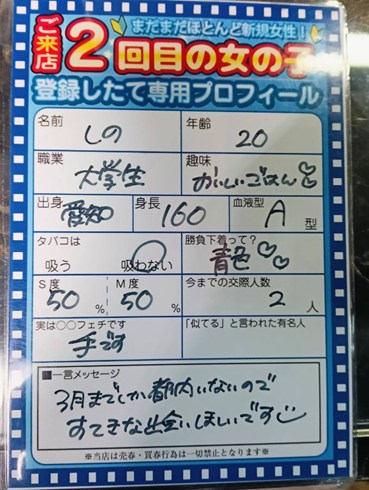 まだまだほとんど新規女性！
ご来店2回目の女の子
登録したて専用プロフィール
名前 しの 年齢 20
職業 大学生 趣味 おいしいごはん♡♡
出身 愛知 身長 160 血液型 A 型
タバコは 吸う 吸わない 勝負下着って？ 青色♡♡
S度 50 % M度 50 % 今までの交際人数 2 人
実は○○フェチです 手です 「似てる」と言われた有名人
■一言メッセージ
3月までしか都内いないので
すてきな出会いほしいです
※当店は売春・買春行為は一切禁止となります※